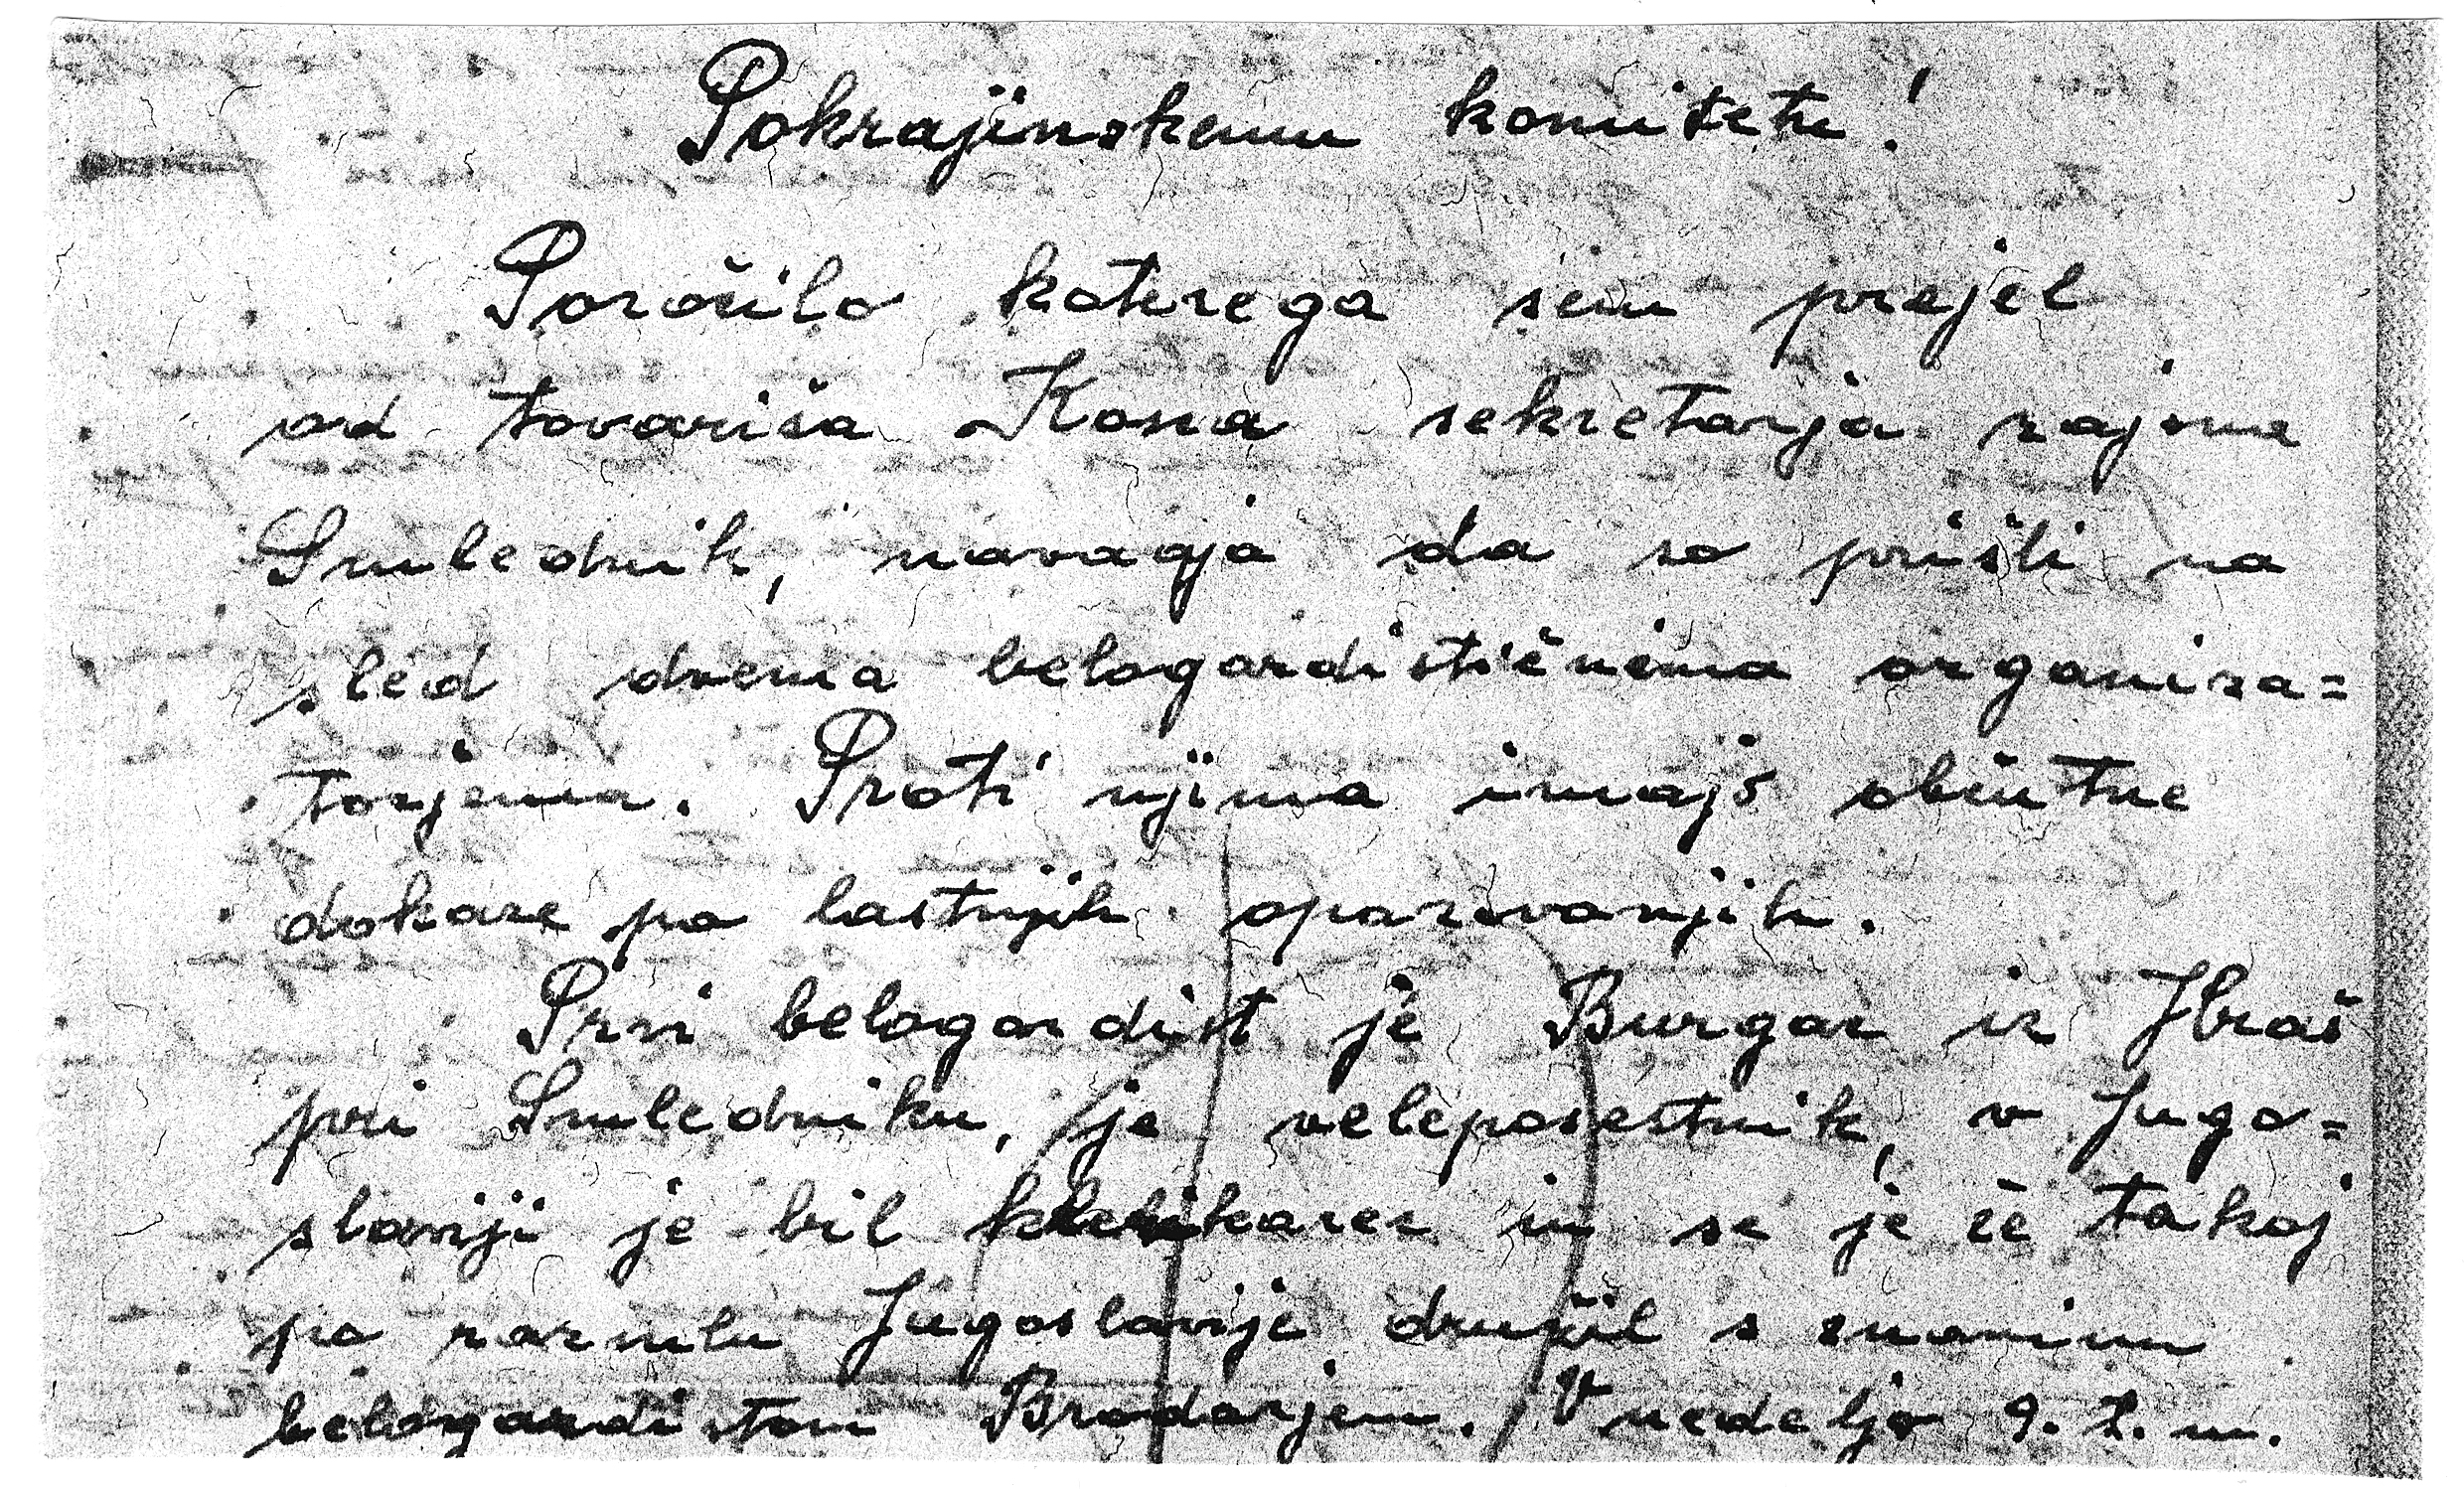 Pokrajinskemu komitetu!
Poročilo katerega sem prejel
od tovariša Kosna sekretarja rajona
Smlednik, navaja da so prišli na
sled dvema belogardističnima organiza=
torjema. Proti njima imajo občutne
dokaze po lastnjih opazovanjih.
Prvi belogardist je Burgar iz Hraš
pri Smledniku, je veleposestnik, v Jugo=
slaviji je bil klerikarec in se je že takoj
po razsulu Jugoslavije družil s znanim
belogardistom Brodarjem. V nedeljo 9. t. m.